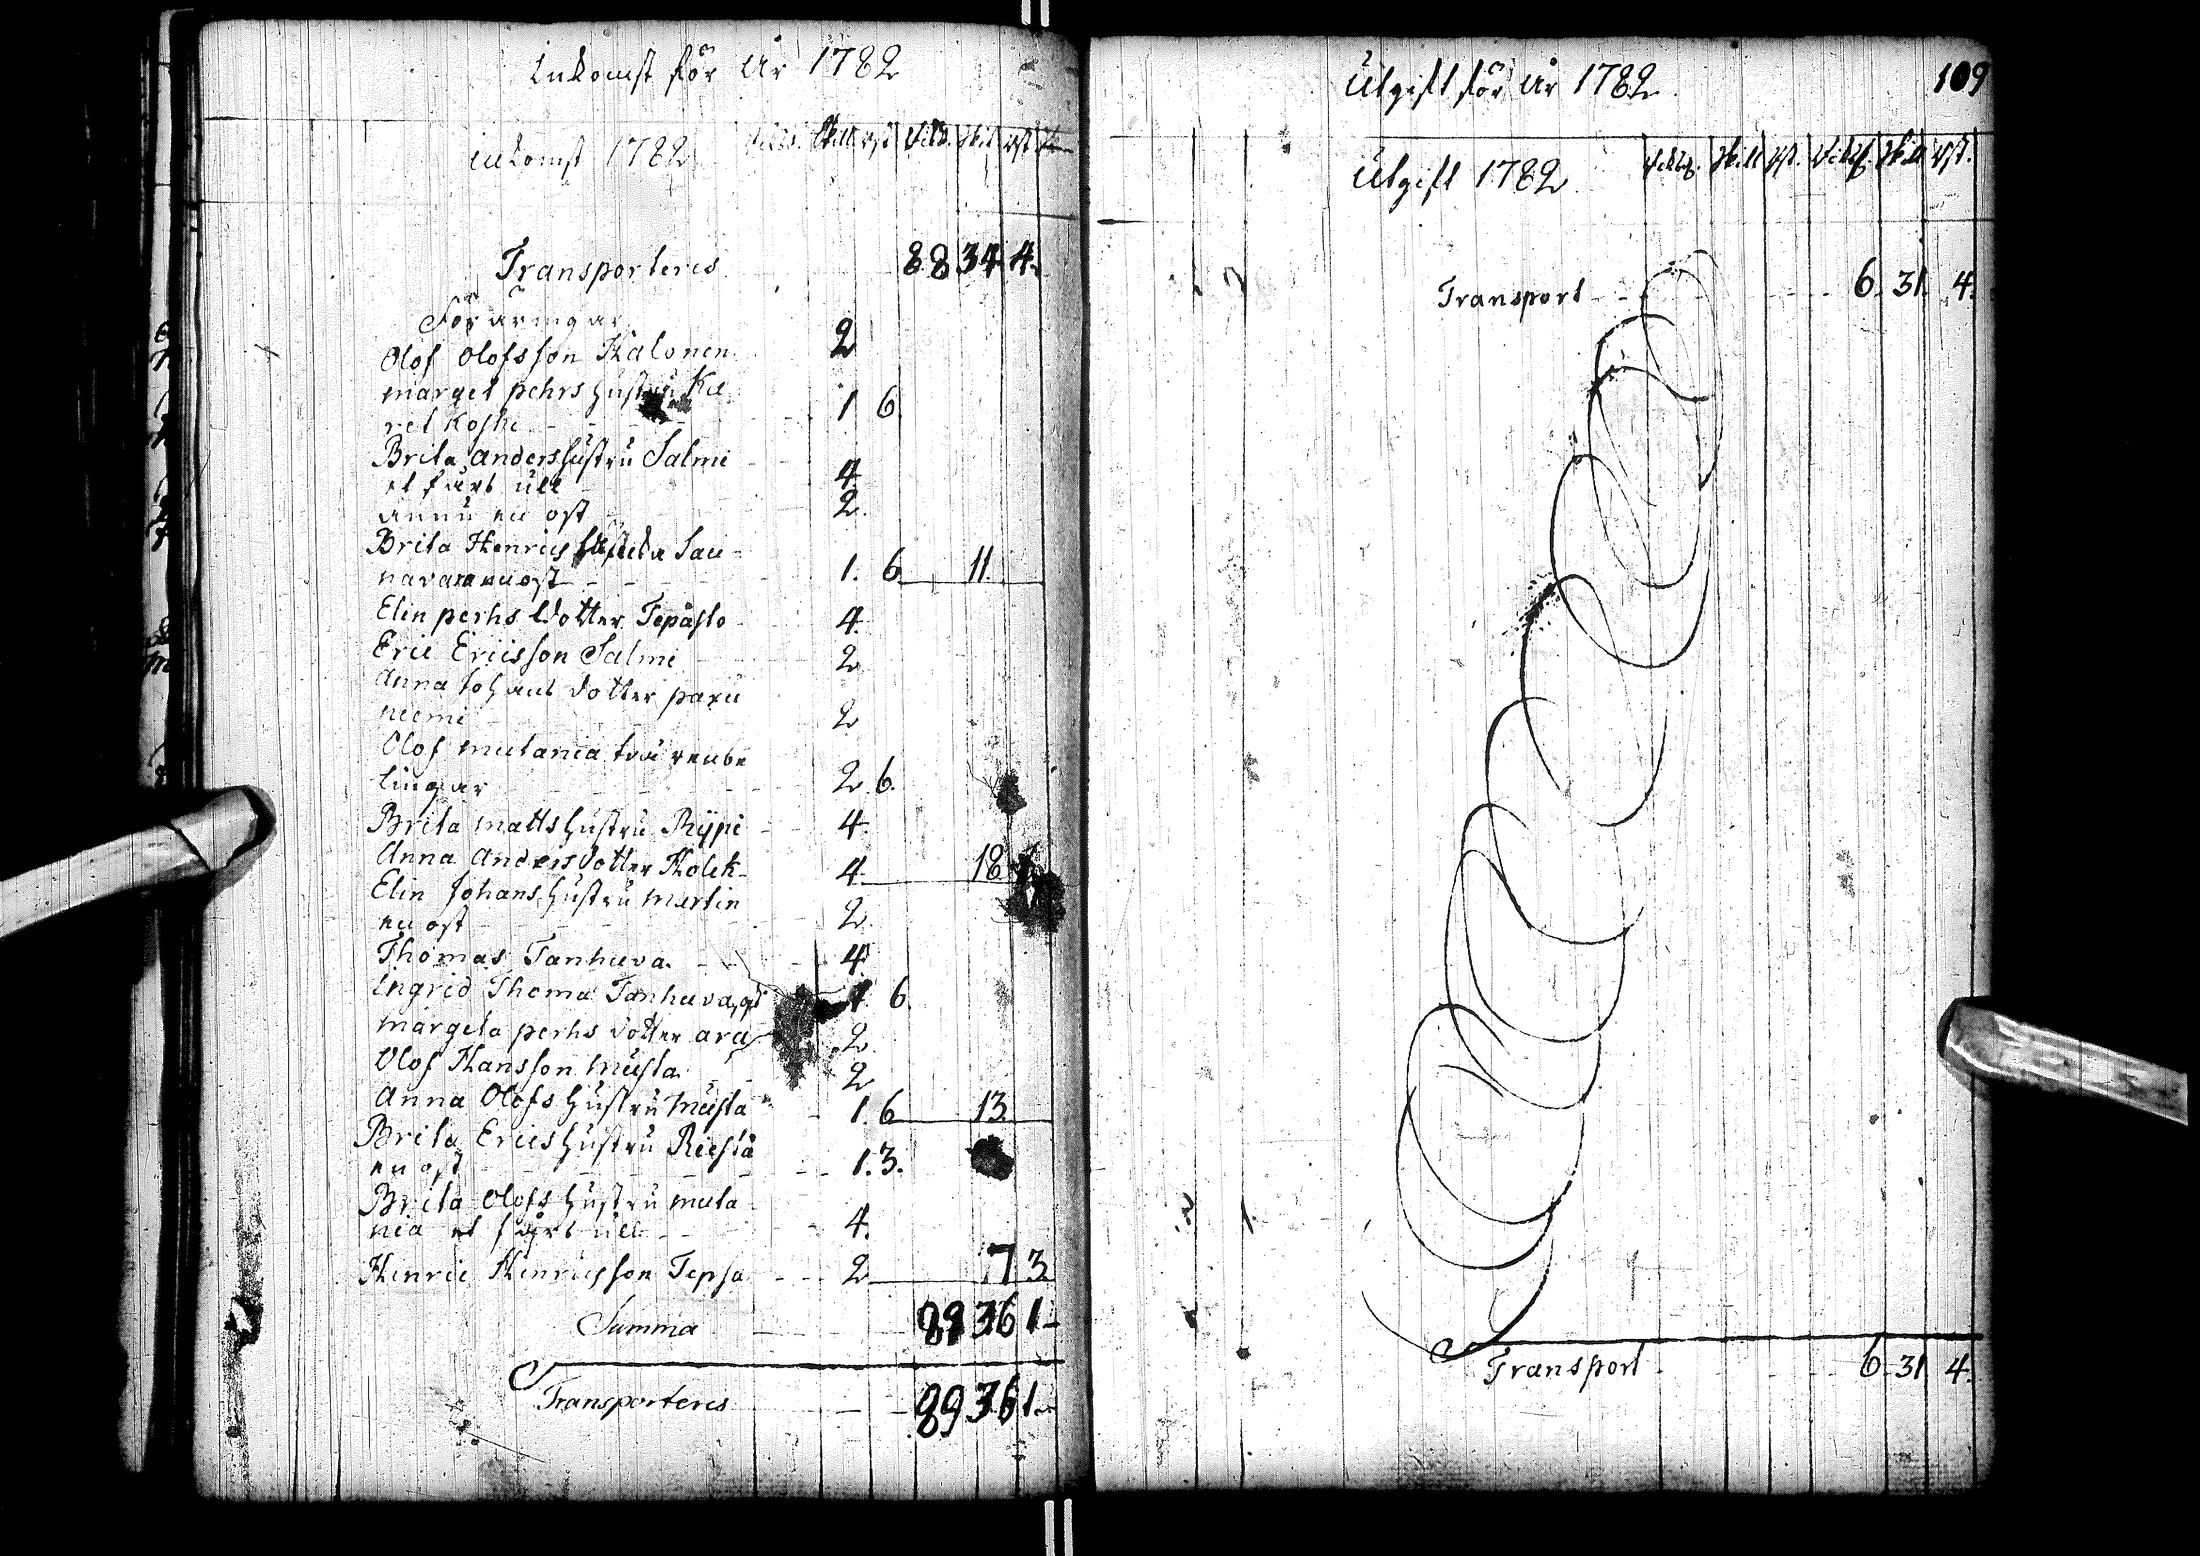 Inkomst för År 1782
inkomst 1782 Rikd. Skill. rst Rikd. Skil. rst
Transporteres 88 34 4.
Föräringar
Olof Olofsson Halonen 2
margel pehrs hustru Ka
rel koski 1 6.
Brita anders hustru Salmi
et fårs ull 4
annu en ost 2.
Brita Henrics Sau
navara en ost 1. 6 11.
Elin perhs dotter Tepåsto 4.
Eric Ericsson Salmi 2
Anna Johans dotter paxu
niemi 2
Olof mutania två renbe
lingar 2 6.
Brita matts hustru Rÿpi 4.
Anna Anders dotter Holck 4. 18
Elin Johans hustru martin
en ost 2.
Thomas Tanhuva 4
Ingrid Thoma Tanhuva 1 6.
margeta perhs dotter ara 2
Olof Hansson musta 2
Anna Olofs hustru musta 1. 6 13.
Brita Erics hustru Riestå
en ost 1. 3.
Brita Olofs hustru muta
nia et fårs ull 4.
Henric Henricsson Tepsa 2 7 3
Summa 89 36 1
Transporteres 89 36 1
Utgift för År 1782 109
Utgift 1782 Rikd. Skill rst. Rikd. Skill rst.
Transport 6. 31. 4.
Transport 6. 31 4.